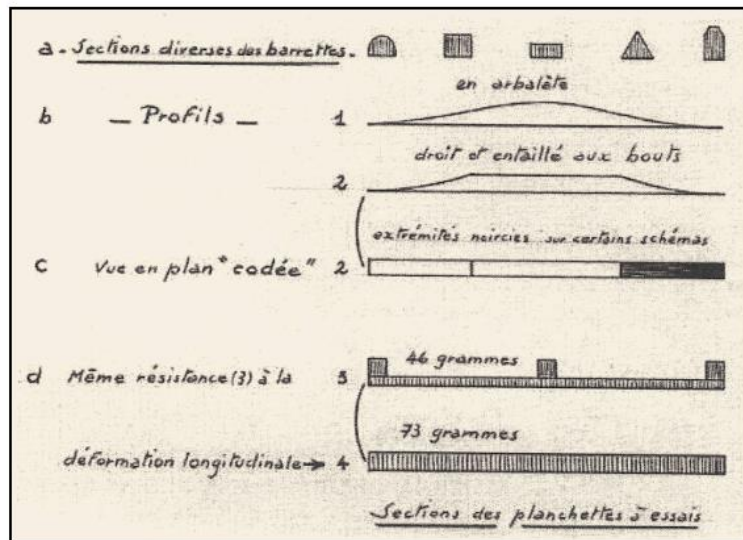 a - Sections diverses des barrettes -
en arbalète
b — Profils — 1
droit et entaillé aux bouts
2
extrémités noircies sur certains schémas
c Vue en plan "codée" 2
46 grammes
d Même résistance (3) à la 3
73 grammes
déformation longitudinale → 4
Sections des planchettes à essais